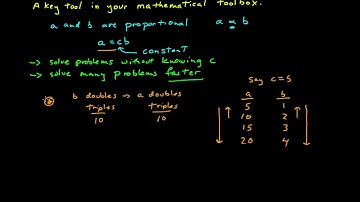 A key tool in your mathematical toolbox.
a and b are proportional a ∝ b
a = cb
constant
→ solve problems without knowing c
→ solve many problems faster
b doubles → a doubles
triples triples
10 10
Say c = 5
a b
5 1
10 2
15 3
20 4